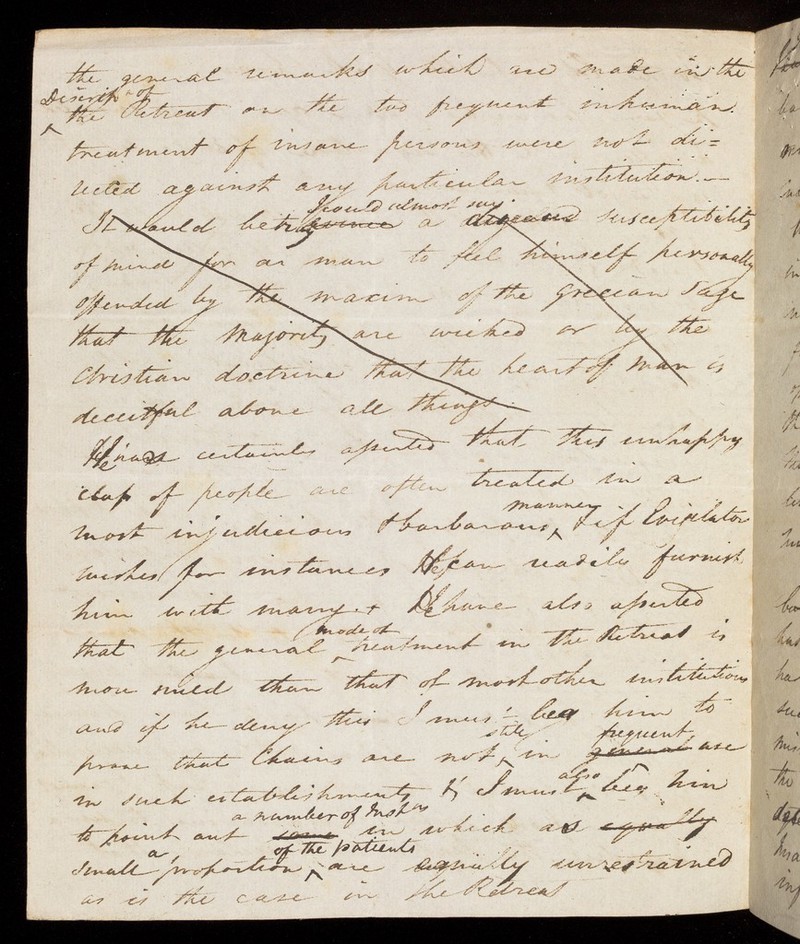 the general remarks which are made in the
Descripn of
the Retreat on the two frequent inhuman
treatment of insane persons were not di=
rected against any particular institution.—
I could almost say
It would betray evince a diseased susceptibility
of mind for a man to feel himself personally
offended by the maxim of the Grecian Sage
that the Majority are wicked or by the
Christian doctrine that the heart of man is
deceitful above all things
certainly asserted that this unhappy
class of people are often treated in a
manner
most injudicious & barbarous, & if
wishes for instances can readily furnish
him with many. & have also asserted
mode of
that the general treatment in the Retreat is
more mild than that of most other institutions
and if he deny this I must beg him to
still frequent
prove that Chains are not in general use
also
in such establishments & I must beg him
a number of Instns
to point out some in which as equally
of the patients
small a proportion are equally unrestrained
as is the case in the Retreat